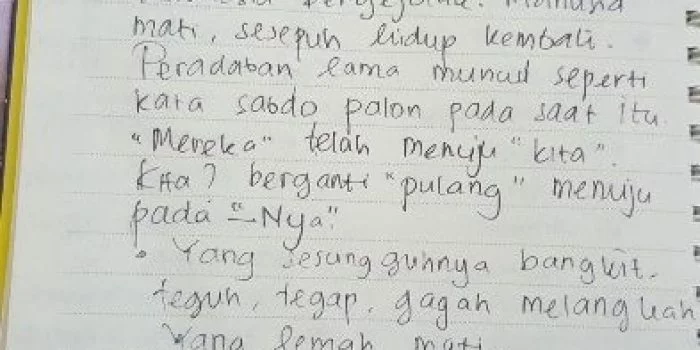 mati, sesepuh hidup kembali.
Peradaban lama muncul seperti
kata sabdo palon pada saat itu.
"Mereka" telah menuju "kita".
Kita? berganti "pulang" menuju
pada "-Nya".
• Yang sesungguhnya bangkit.
teguh, tegap, gagah melangkah
Yang lemah mati